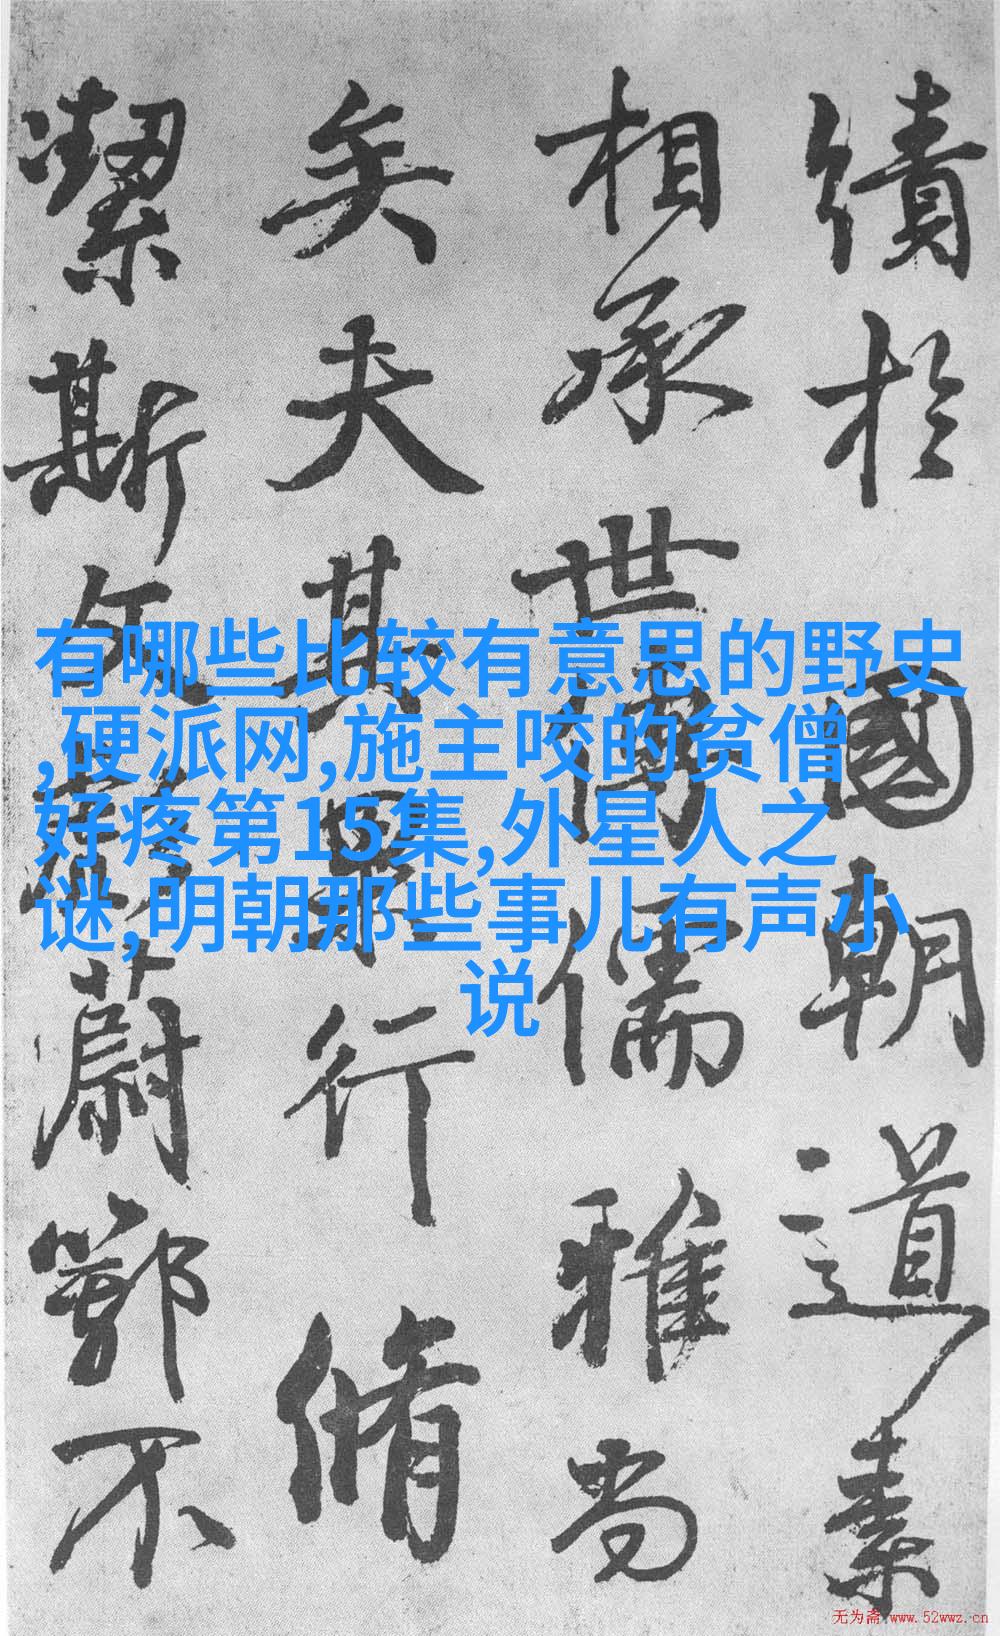 績於國朝道素
相承世傳儒雅尚
矣夫其果行脩
潔斯文彪蔚鄂不
有哪些比较有意思的野史
,硬派网,施主咬的贫僧
好疼第15集,外星人之
谜,明朝那些事儿有声小
说
无为斋 www.52wwz.cn